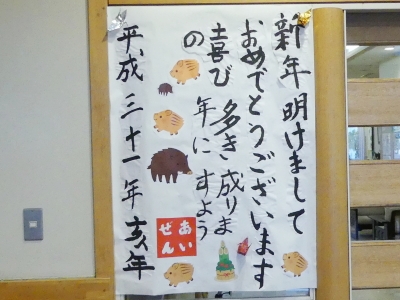 新年明けまして
おめでとうございます
喜び多き成りま
の年にすよう
平成三十一年亥年
あい
ぜん